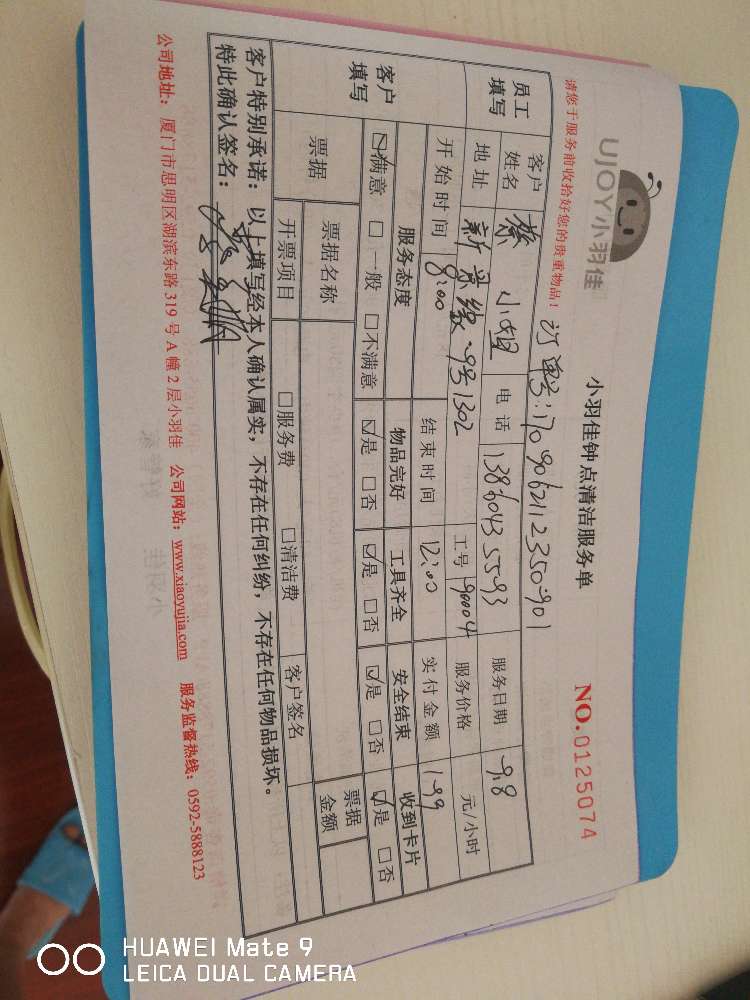 UJOY小羽佳
小羽佳钟点清洁服务单
NO.0125074
请您于服务前收拾好您的贵重物品！
订单号:1709062112350901
员工填写 客户姓名 蔡小姐 电话 13860435593 服务日期 9.8
地址 新景缘.9号1302 工号 90004 服务价格 元/小时
开始时间 8:00 结束时间 12:00 实付金额 199
客户填写 服务态度 物品完好 工具齐全 安全结束 收到卡片
☑满意 □一般 □不满意 ☑是 □否 ☑是 □否 ☑是 □否 ☑是 □否
票据 票据名称 票据金额
开票项目 □服务费 □清洁费 客户签名
客户特别承诺：以上填写经本人确认属实，不存在任何纠纷，不存在任何物品损坏。
特此确认签名：
公司地址：厦门市思明区湖滨东路319号A幢2层小羽佳 公司网站：www.xiaoyujia.com 服务监督热线：0592-5888123
HUAWEI Mate 9
LEICA DUAL CAMERA